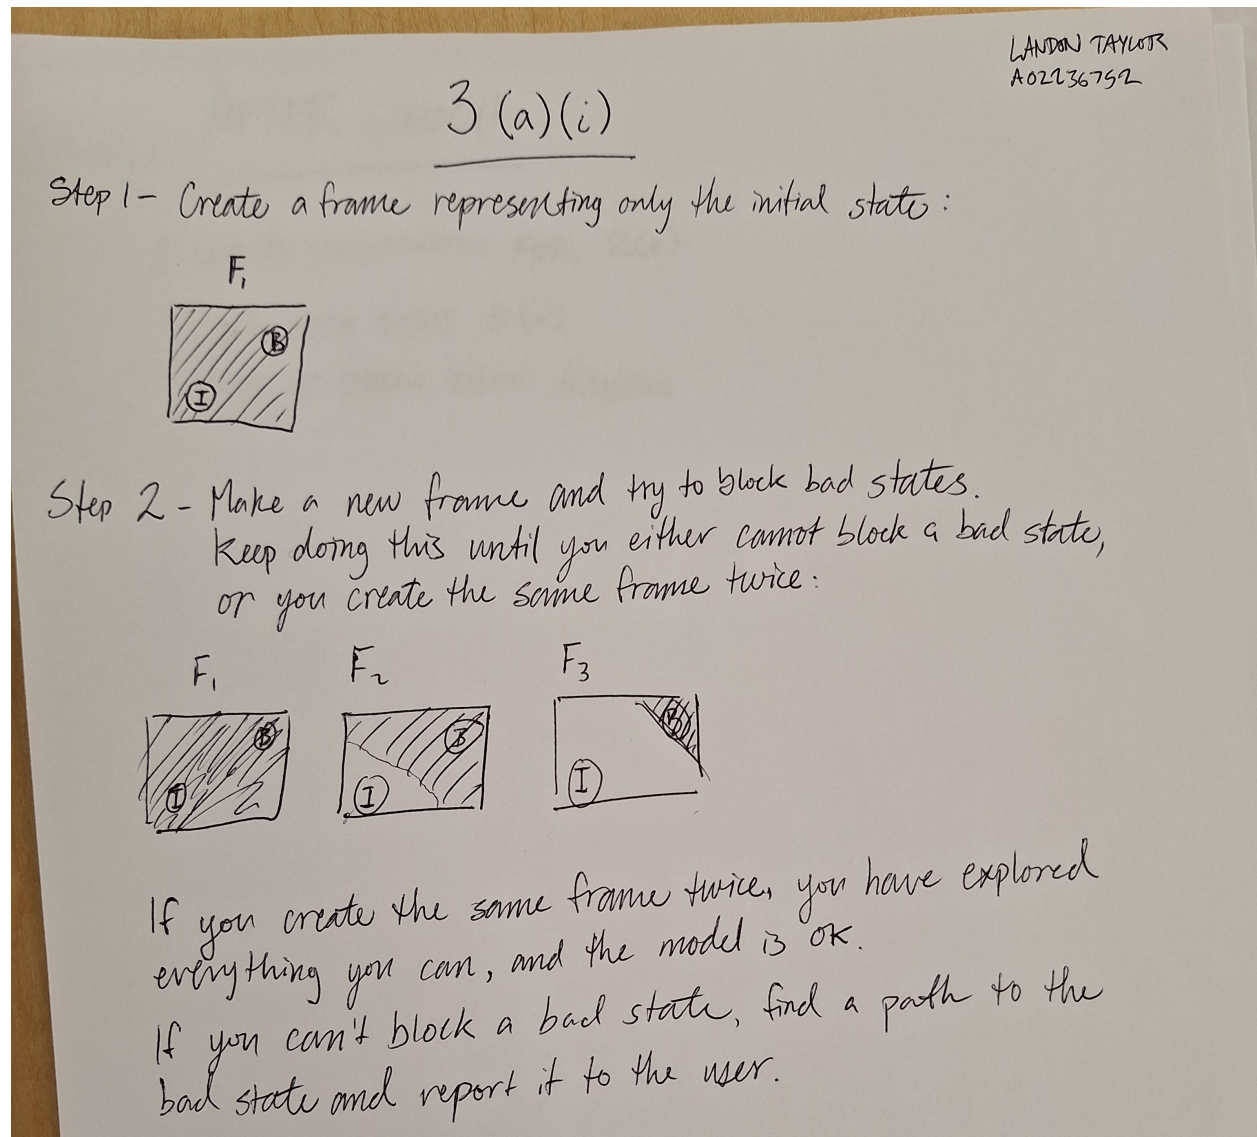 LANDON TAYLOR
A02236752
3 (a)(i)
Step 1 - Create a frame representing only the initial state:
F₁
B
I
Step 2 - Make a new frame and try to block bad states.
Keep doing this until you either cannot block a bad state,
or you create the same frame twice:
F₁ F₂ F₃
B B B
I I I
If you create the same frame twice, you have explored
everything you can, and the model is OK.
If you can't block a bad state, find a path to the
bad state and report it to the user.